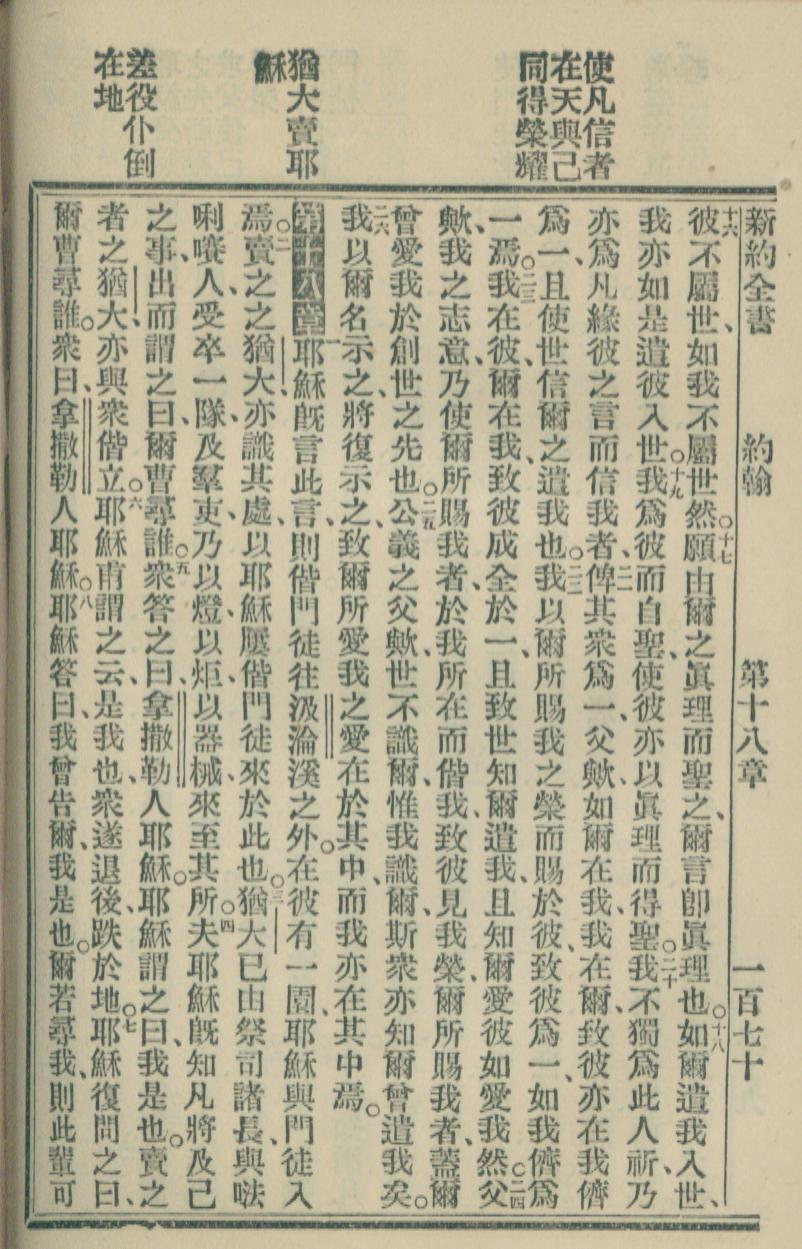 新約全書 約翰 第十八章 一百七十
使凡信者
在天與己
同得榮耀
猶大賣耶
穌
差役仆倒
在地
十六彼不屬世、如我不屬世、○十七然願由爾之眞理而聖之、爾言卽眞理也、○十八如爾遣我入世、
我亦如是遣彼入世、○十九我爲彼而自聖、使彼亦以眞理而得聖、○二十我不獨爲此人祈、乃
亦爲凡緣彼之言而信我者、二一俾其衆爲一、父歟、如爾在我、我在爾、致彼亦在我儕
爲一、且使世信爾之遣我也、○二二我以爾所賜我之榮而賜於彼、致彼爲一、如我儕爲
一焉、○二三我在彼、爾在我、致彼成全於一、且致世知爾遣我、且知爾愛彼如愛我然、○二四父
歟、我之志意、乃使爾所賜我者、於我所在而偕我、致彼見我榮、爾所賜我者、蓋爾
曾愛我於創世之先也、○二五公義之父歟、世不識爾、惟我識爾、斯衆亦知爾曾遣我矣。
二六我以爾名示之、將復示之、致爾所愛我之愛在於其中、而我亦在其中焉。
第十八章 一耶穌旣言此言、則偕門徒往汲淪溪之外、在彼有一園、耶穌與門徒入
焉、○二賣之之猶大、亦識其處、以耶穌屢偕門徒來於此也、○三猶大已由祭司諸長與㕸
唎㘔人受卒一隊、及羣吏、乃以燈、以炬、以器械、來至其所、○四夫耶穌旣知凡將及己
之事、出而謂之曰、爾曹尋誰、○五衆答之曰、拿撒勒人耶穌。耶穌謂之曰、我是也。賣之
者之猶大、亦與衆偕立、○六耶穌甫謂之云、是我也、衆遂退後、跌於地、○七耶穌復問之曰、
爾曹尋誰。衆曰、拿撒勒人耶穌、○八耶穌答曰、我曾告爾、我是也。爾若尋我、則此輩可